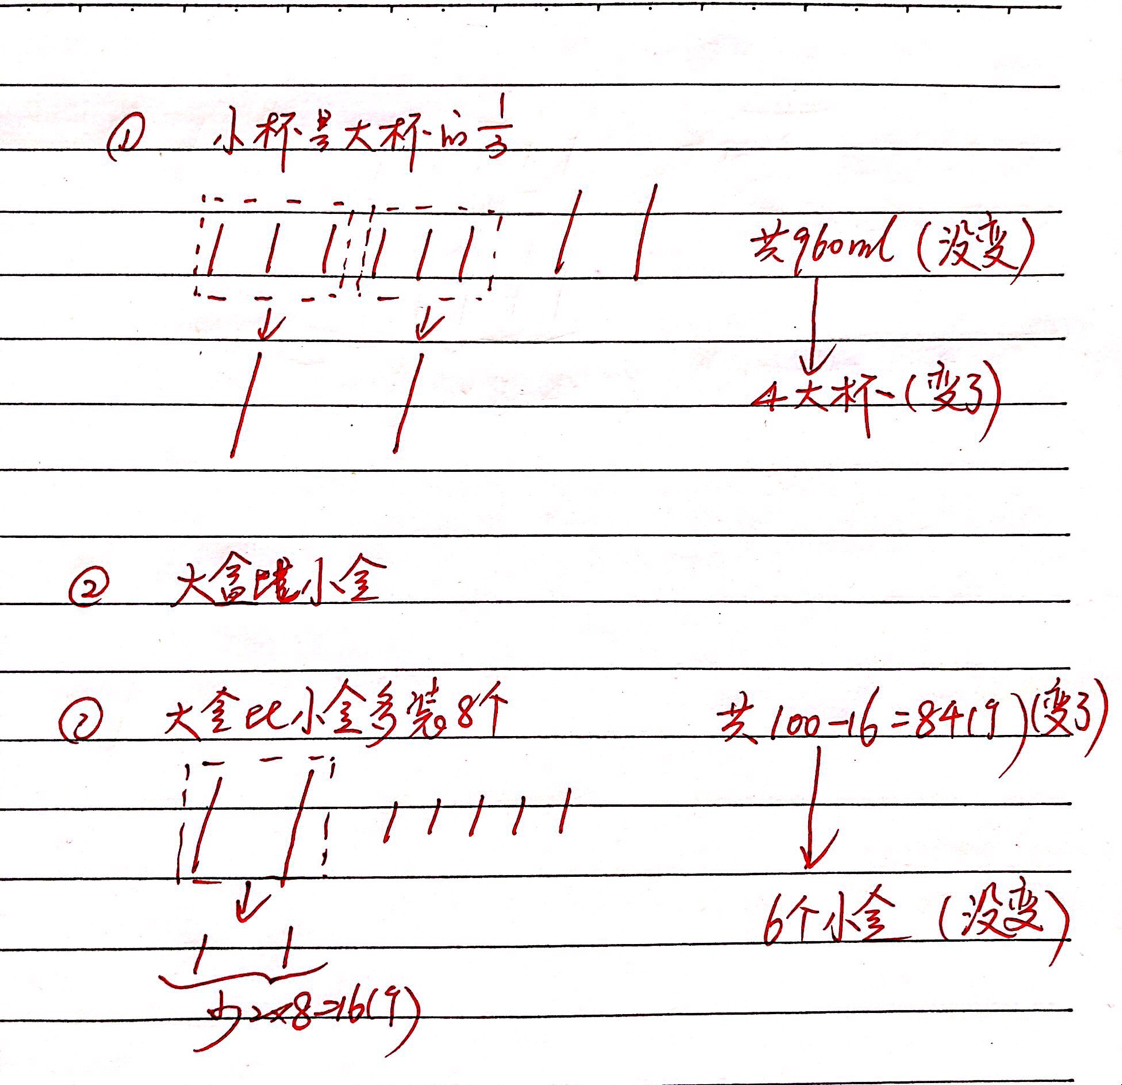 ① 小杯是大杯的1/3
共960ml (没变)
4大杯 (变了)
② 大盒比小盒
大盒比小盒多装8个
共100-16=84(个)(变了)
6个小盒 (没变)
少2×8=16(个)